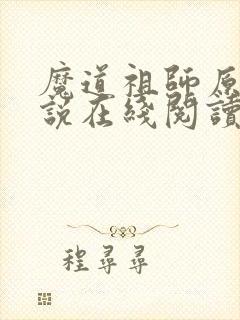 魔道祖師原
說在綫閱讀
程尋尋